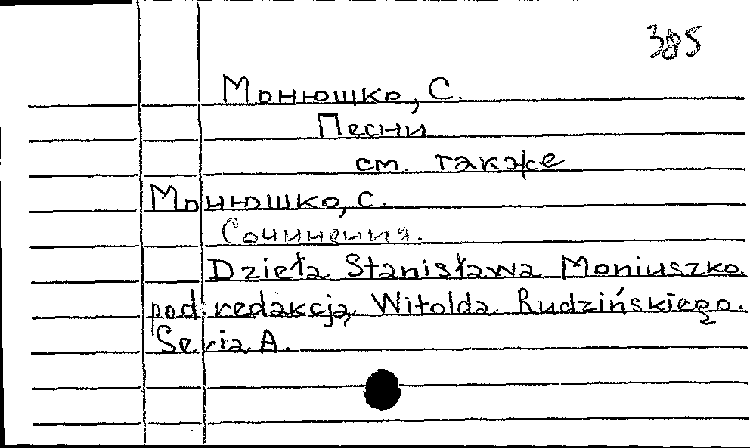 385
Монюшко, С.
Песни
см. также
Монюшко, С.
Сочинения.
Dzieła Stanisława Moniuszko
pod redakcją Witolda Rudzińskiego.
Seria A.